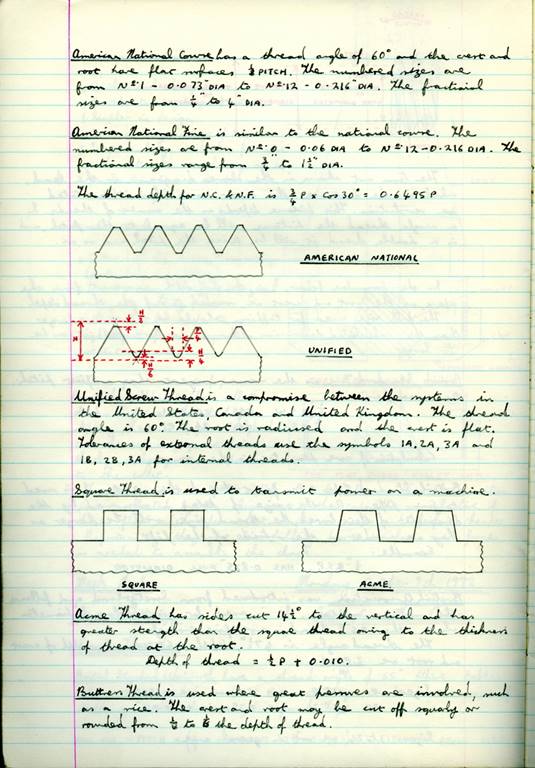 American National Course has a thread angle of 60° and the crest and
root have flat surfaces ⅛ PITCH. The numbered sizes are
from Nº 1 - 0.073" DIA to Nº 12 - 0.216" DIA. The fractional
sizes are from ¼" to 4" DIA.
American National Fine is similar to the national course. The
numbered sizes are from Nº 0 - 0.06 DIA to Nº 12 - 0.216 DIA. The
fractional sizes range from to 1½" DIA.
The thread depth for N.C. & N.F. is ¾ P x Cos 30° = 0.6495 P
AMERICAN NATIONAL
H
H/8
P/4
H/4
H/6
UNIFIED
Unified Screw Thread is a compromise between the systems in
the United States, Canada and United Kingdom. The thread
angle is 60°. The root is radiused and the crest is flat.
Tolerances of external threads use the symbols 1A, 2A, 3A and
1B, 2B, 3A for internal threads.
Square Thread is used to transmit power on a machine.
SQUARE
ACME
Acme Thread has sides cut 14½° to the vertical and has
greater strength than the square thread owing to the thickness
of thread at the root.
Depth of thread = ½ P + 0.010.
Buttress Thread is used where great pressures are involved, such
as a vice. The crest and root may be cut off squarely or
rounded from to the depth of thread.